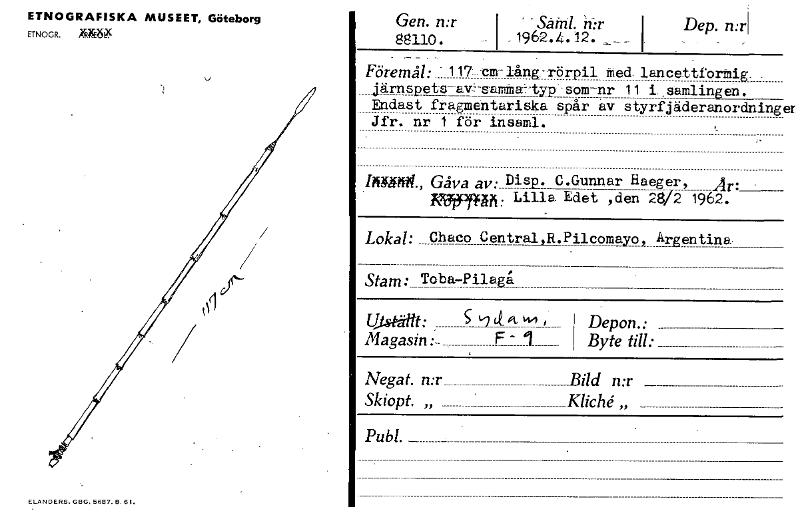 ETNOGRAFISKA MUSEET, Göteborg
ETNOGR.
117 cm
ELANDERS. GBG. 5687. 8. 61.
Gen. n:r Saml. n:r Dep. n:r
88110. 1962.4.12.
Föremål: 117 cm lång rörpil med lancettformig
järnspets av samma typ som nr 11 i samlingen.
Endast fragmentariska spår av styrfjäderanordninger
Jfr. nr 1 för insaml.
Insaml., Gåva av: Disp. C.Gunnar Haeger, År:
Köp från: Lilla Edet ,den 28/2 1962.
Lokal: Chaco Central,R.Pilcomayo, Argentina
Stam: Toba-Pilagá
Utställt: Sydam. Depon.:
Magasin: F-9 Byte till:
Negat. n:r Bild n:r
Skiopt. „ Kliché „
Publ.